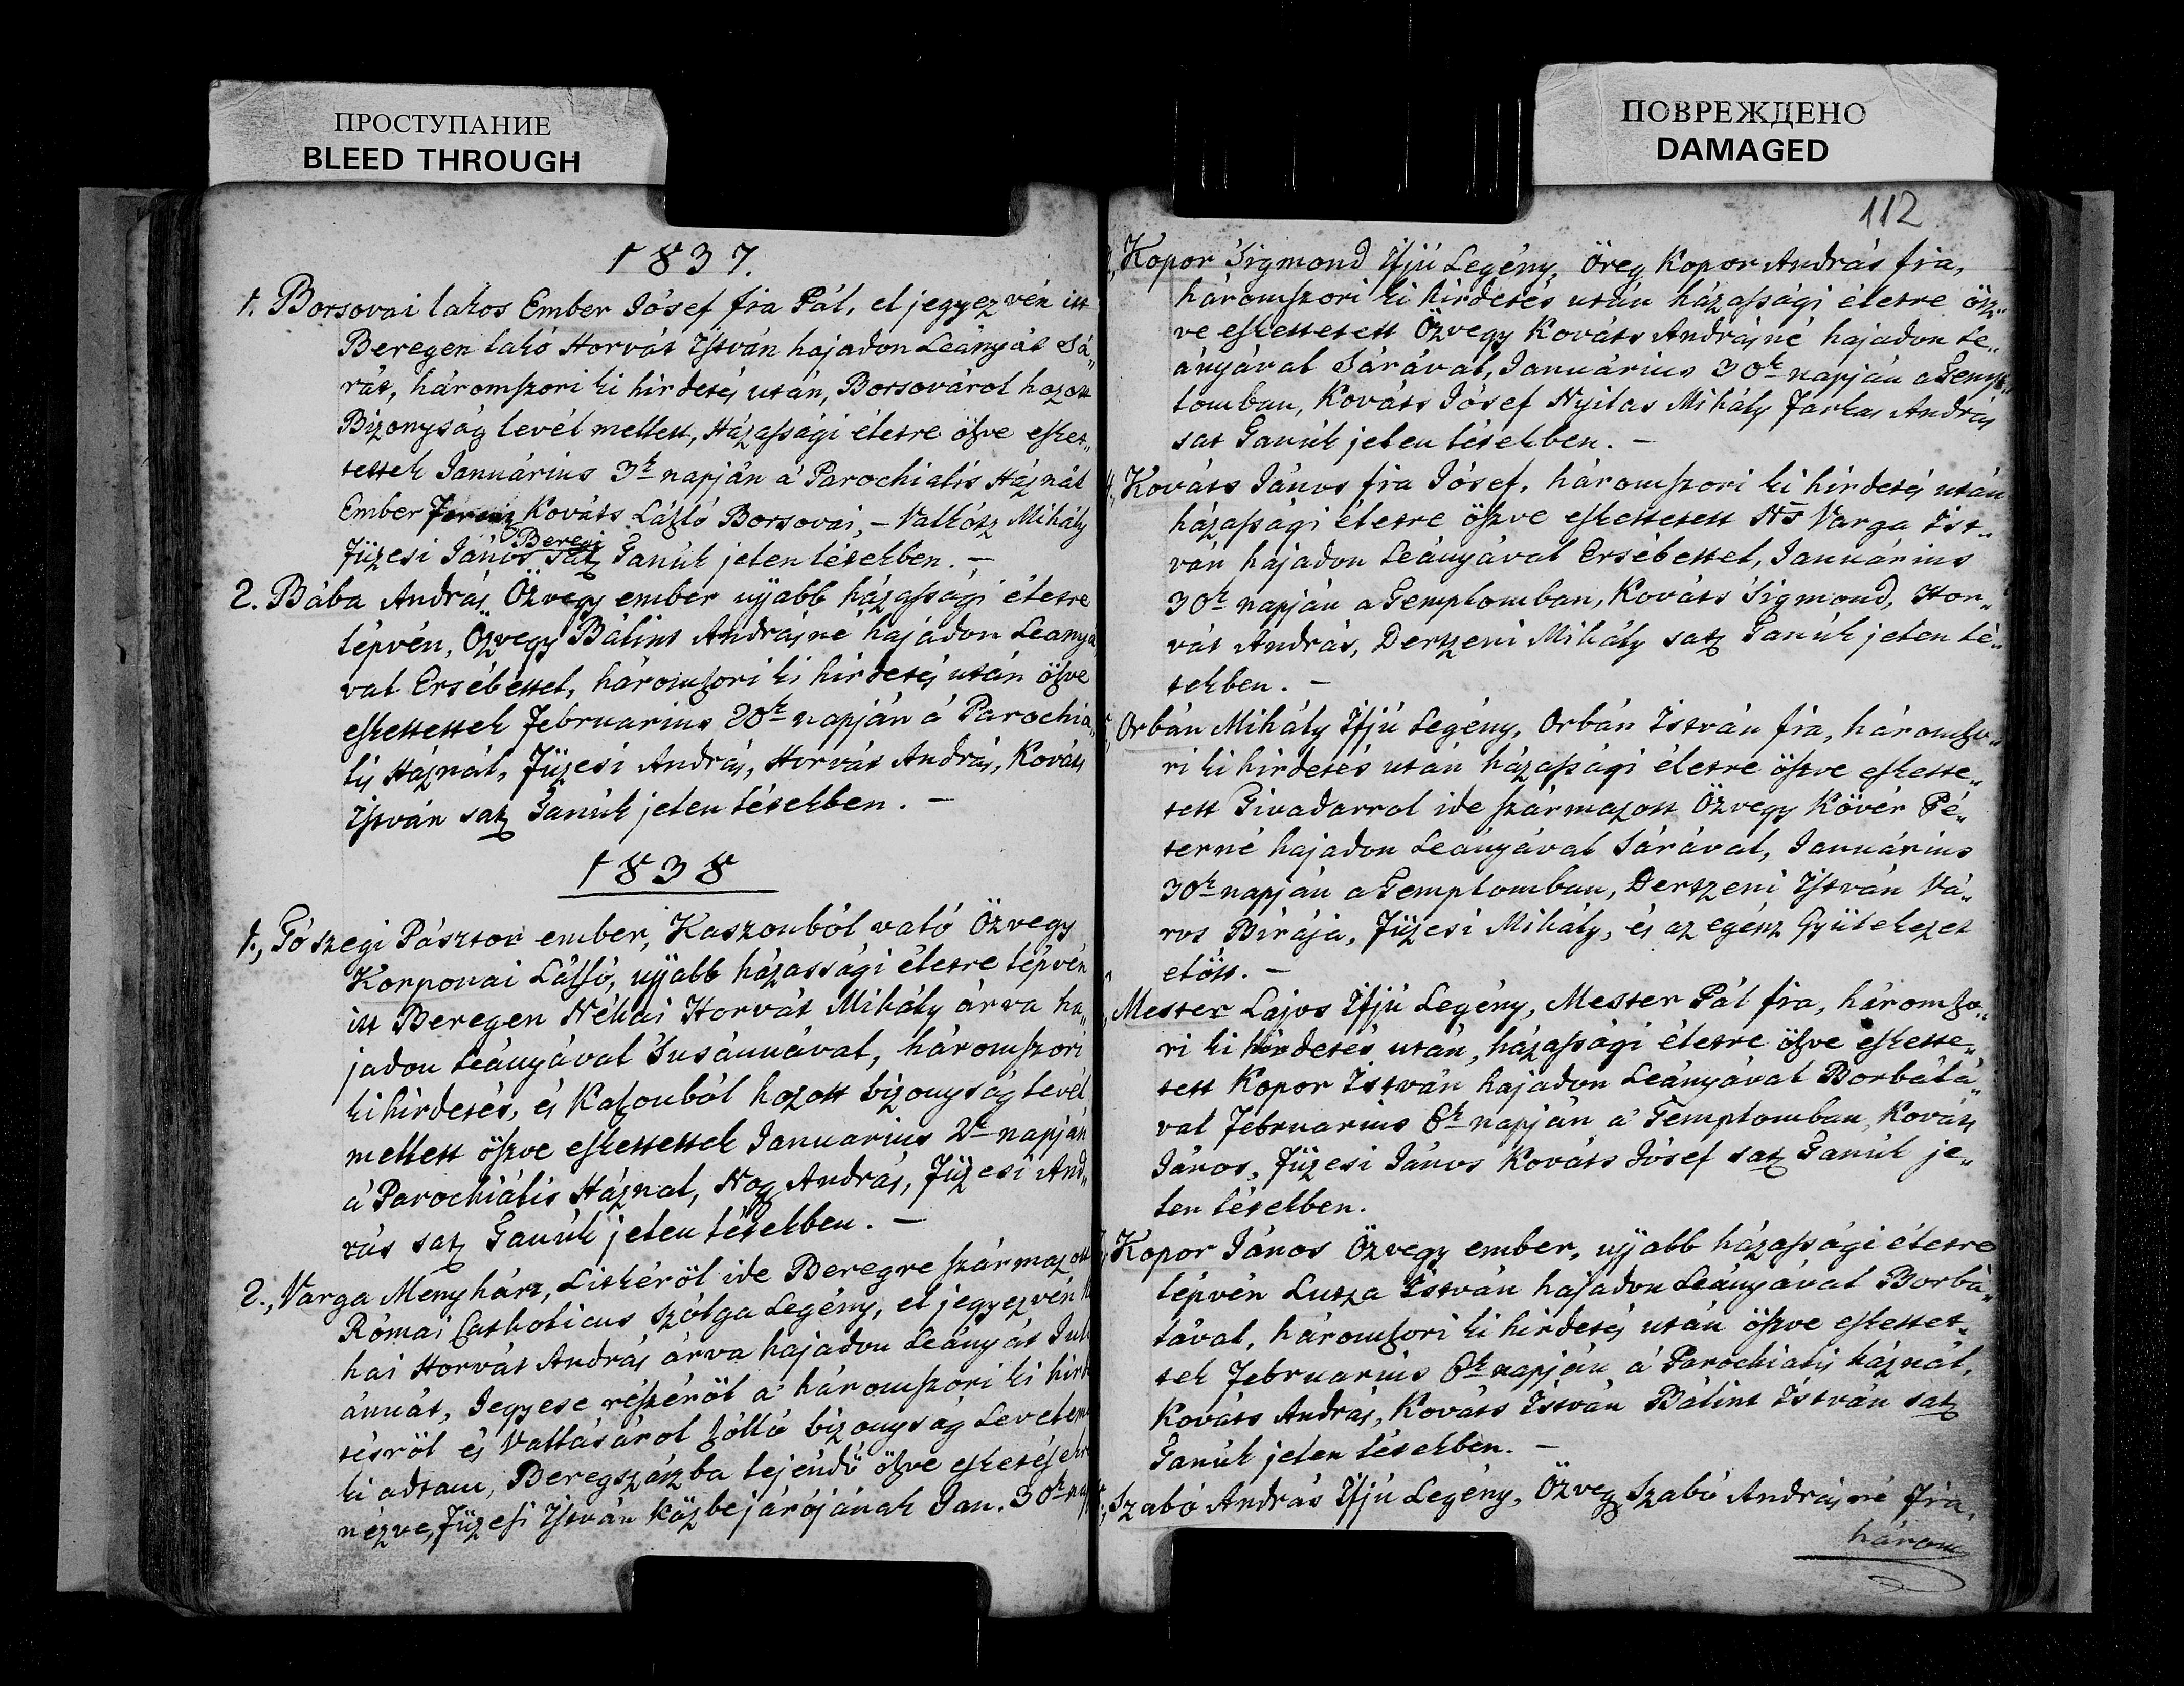 ПРОСТУПАНИЕ
BLEED THROUGH
1837.
1. Borsovai lakos Ember Jósef fia Pál, el jegyezvén itt
Beregen lakó Horvát István hajadon Leányát Sá„
rát, háromszori ki hirdetés után, Borsovárol hozott
Bizonyság levél mellett, Házassági életre öszve esket„
tettek Januárius 3k napján á Parochialis Háznál
Ember Ferenz Kováts László Borsovai, – Valkósz Mihály
Beregi
Füzesi János satz Tanúk jelen létekben. –
2. Bába András Özvegy ember ujjabb házassági életre
lépvén, Özvegy Bálint Andrásné hajadon Leanyá„
val Ersébettel, háromszori ki hirdetés után öszve
eskettettek Februarius 20k napján á Parochia„
lis Háznál, Füzesi András, Horvát András, Kováts
István satz Tanúk jelen létekben. –
1838
1., Tószegi Pásztor ember, Kaszonból való Özvegy
Korponai László, ujjabb házassági életre lépvén
itt Beregen Néhai Horvát Mihály árva ha„
jadon Leányával Susánnával, háromszori
ki hirdetés, és Kaszonból hozott bizonyság levél
mellett öszve eskettettek Januarius 2k napján
á Parochiális Háznal, Nagy András, Füzesi And„
rás satz Tanúk jelen létekben. –
2., Varga Menyhárt, Liskéröl ide Beregre származott
Római Catholicus szólga Legény, el jegyezvén
hai Horvát András árva hajadon Leányát
ánnát, Jegyese részéröl a' háromszori ki
tésröl és Vallásárol szólló bizonyság
ki adtam, Beregszászba lejéndö öszve
nézve, Füzesi István közbejárójának Jan. 30k
ПОВРЕЖДЕНО
DAMAGED
112
Kopor Sigmond Ifjú Legény, Öreg Kopor András fia,
háromszori ki hirdetés után házassági életre ösz„
ve eskettetett Özvegy Kováts Andrásné hajadon Le„
ányával Sárával, Januárius 30k napján a Temp„
lomban, Kováts Jósef Nyilas Mihály Farkas András
sat Tanúk jelen létekben. –
4., Kováts János fia Jósef, háromszori ki hirdetés után
házassági életre öszve eskettetett Ns Varga Ist„
ván hajadon Leányával Ersébettel, Januárius
30k napján a Templomban, Kováts Sigmond, Hor„
vát András, Dertzeni Mihály satz Tanúk jelen lé„
tekben. –
Orbán Mihály Ifjú Legény, Orbán István fia, háromszo„
ri ki hirdetés után házassági életre öszve eskette„
tett Tivadarrol ide származott Özvegy Kövér Pé„
terné hajadon Leányával Sárával, Januárius
30k napján a Templomban, Dertzeni István Vá„
ros Birája, Füzesi Mihály, és az egész Gyülekezet
elött. –
Mester Lajos Ifjú Legény, Mester Pál fia, háromszo„
ri ki hirdetés után, házassági életre öszve eskette„
tett Kopor István hajadon Leányával Borbálá„
val Februarius 6k napján a' Templomban, Kováts
János, Füzesi János Kováts Jósef satz Tanúk je„
len létekben.
Kopor János Özvegy ember, ujjabb házassági életre
lépvén Lutza István hajadon Leányával Borbá„
lával, háromszori ki hirdetés után öszve eskettet„
tek Februarius 6k napján á Parochialis háznál,
Kováts András, Kováts István Bálint István satz
Tanúk jelen létekben. –
Szabó András Ifjú Legény, Özvegy Szabó Andrásné fia,
három